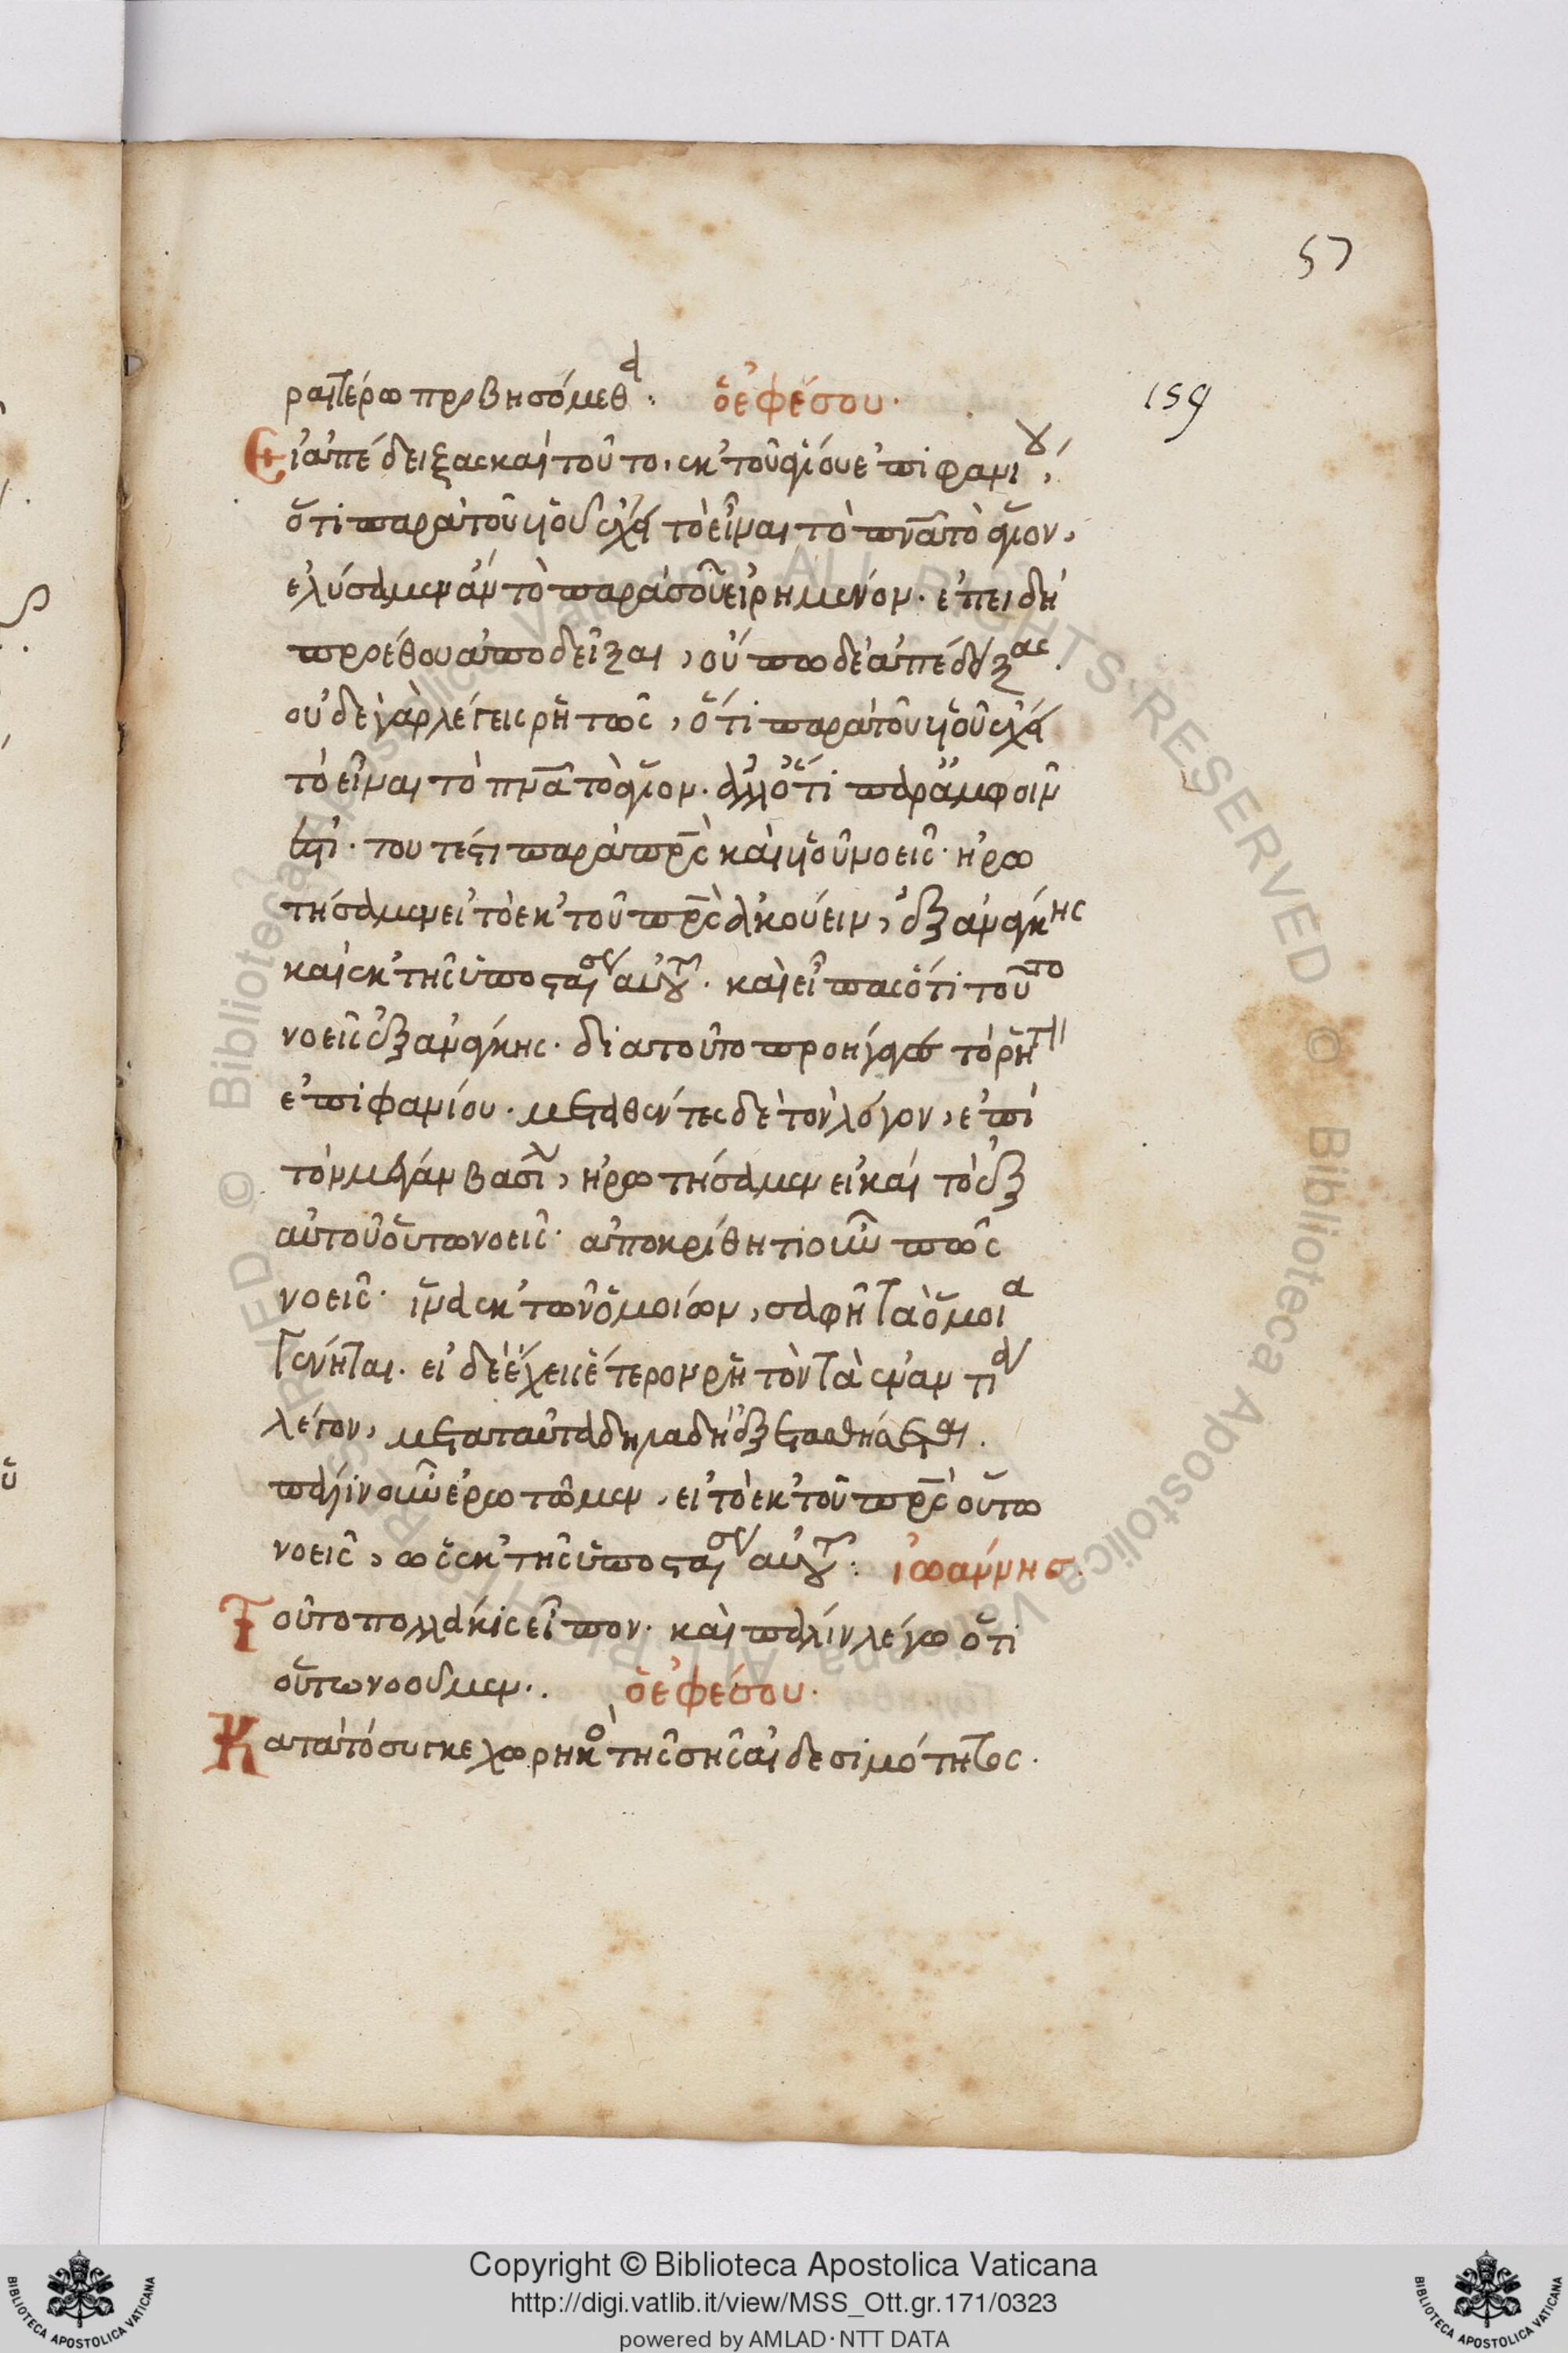 57
ραιτέρω προβησόμεθα. ὁ ἐφέσου.
159
Εἰ ἀπέδειξας καὶ τοῦτο, ἐκ τοῦ ἁγίου ἐπιφανίου,
ὅτι παρὰ τοῦ υἱοῦ ἔχει τὸ εἶναι τὸ πνα τὸ ἅγιον,
ἐλύσαμεν ἂν τὸ παρὰ σοῦ εἰρημένον. ἐπειδὴ
προέθου ἀποδεῖξαι, οὔπω δὲ ἀπέδειξας.
οὐδὲ γὰρ λέγεις ῥητῶς, ὅτι παρὰ τοῦ υἱοῦ ἔχει
τὸ εἶναι τὸ πνα τὸ ἅγιον. ἀλλ' ὅτι παρ' ἀμφοῖν
ἐστι. τουτέστι παρὰ πρς καὶ υἱοῦ νοεῖς. ἠρω
τήσαμεν εἰ τὸ ἐκ τοῦ πρς ἀκούειν, ἐξ ἀνάγκης
καὶ ἐκ τῆς ὑποστάσεως αὐτοῦ. καὶ εἶπας ὅτι τοῦτο
νοεῖς ἐξ ἀνάγκης. διὰ τοῦτο προήγαγες τὸ ῥητὸν
ἐπιφανίου. μεταθέντες δὲ τὸν λόγον, ἐπὶ
τὸν μέγαν βασίλειον, ἠρωτήσαμεν εἰ καὶ τὸ ἐξ
αὐτοῦ οὕτω νοεῖς. ἀποκρίθητι οὖν πῶς
νοεῖς. ἵνα ἐκ τῶν ὁμοίων, σαφῆ τὰ ὅμοια
γένηται. εἰ δὲ ἔχεις ἕτερον ῥητὸν τὰ ἐναντία
λέγον, μετὰ ταῦτα δηλαδὴ ἐξετασθήσεται.
πάλιν οὖν ἐρωτῶμεν, εἰ τὸ ἐκ τοῦ πρς οὕτω
νοεῖς, ὡς ἐκ τῆς ὑποστάσεως αὐτοῦ: ἰωάννης.
Τοῦτο πολλάκις εἶπον. καὶ πάλιν λέγω ὅτι
οὕτω νοοῦμεν.. ὁ ἐφέσου.
Κατὰ τὸ συγκεχωρηκὸς τῆς σῆς αἰδεσιμότητος.
Copyright © Biblioteca Apostolica Vaticana
http://digi.vatlib.it/view/MSS_Ott.gr.171/0323
powered by AMLAD·NTT DATA